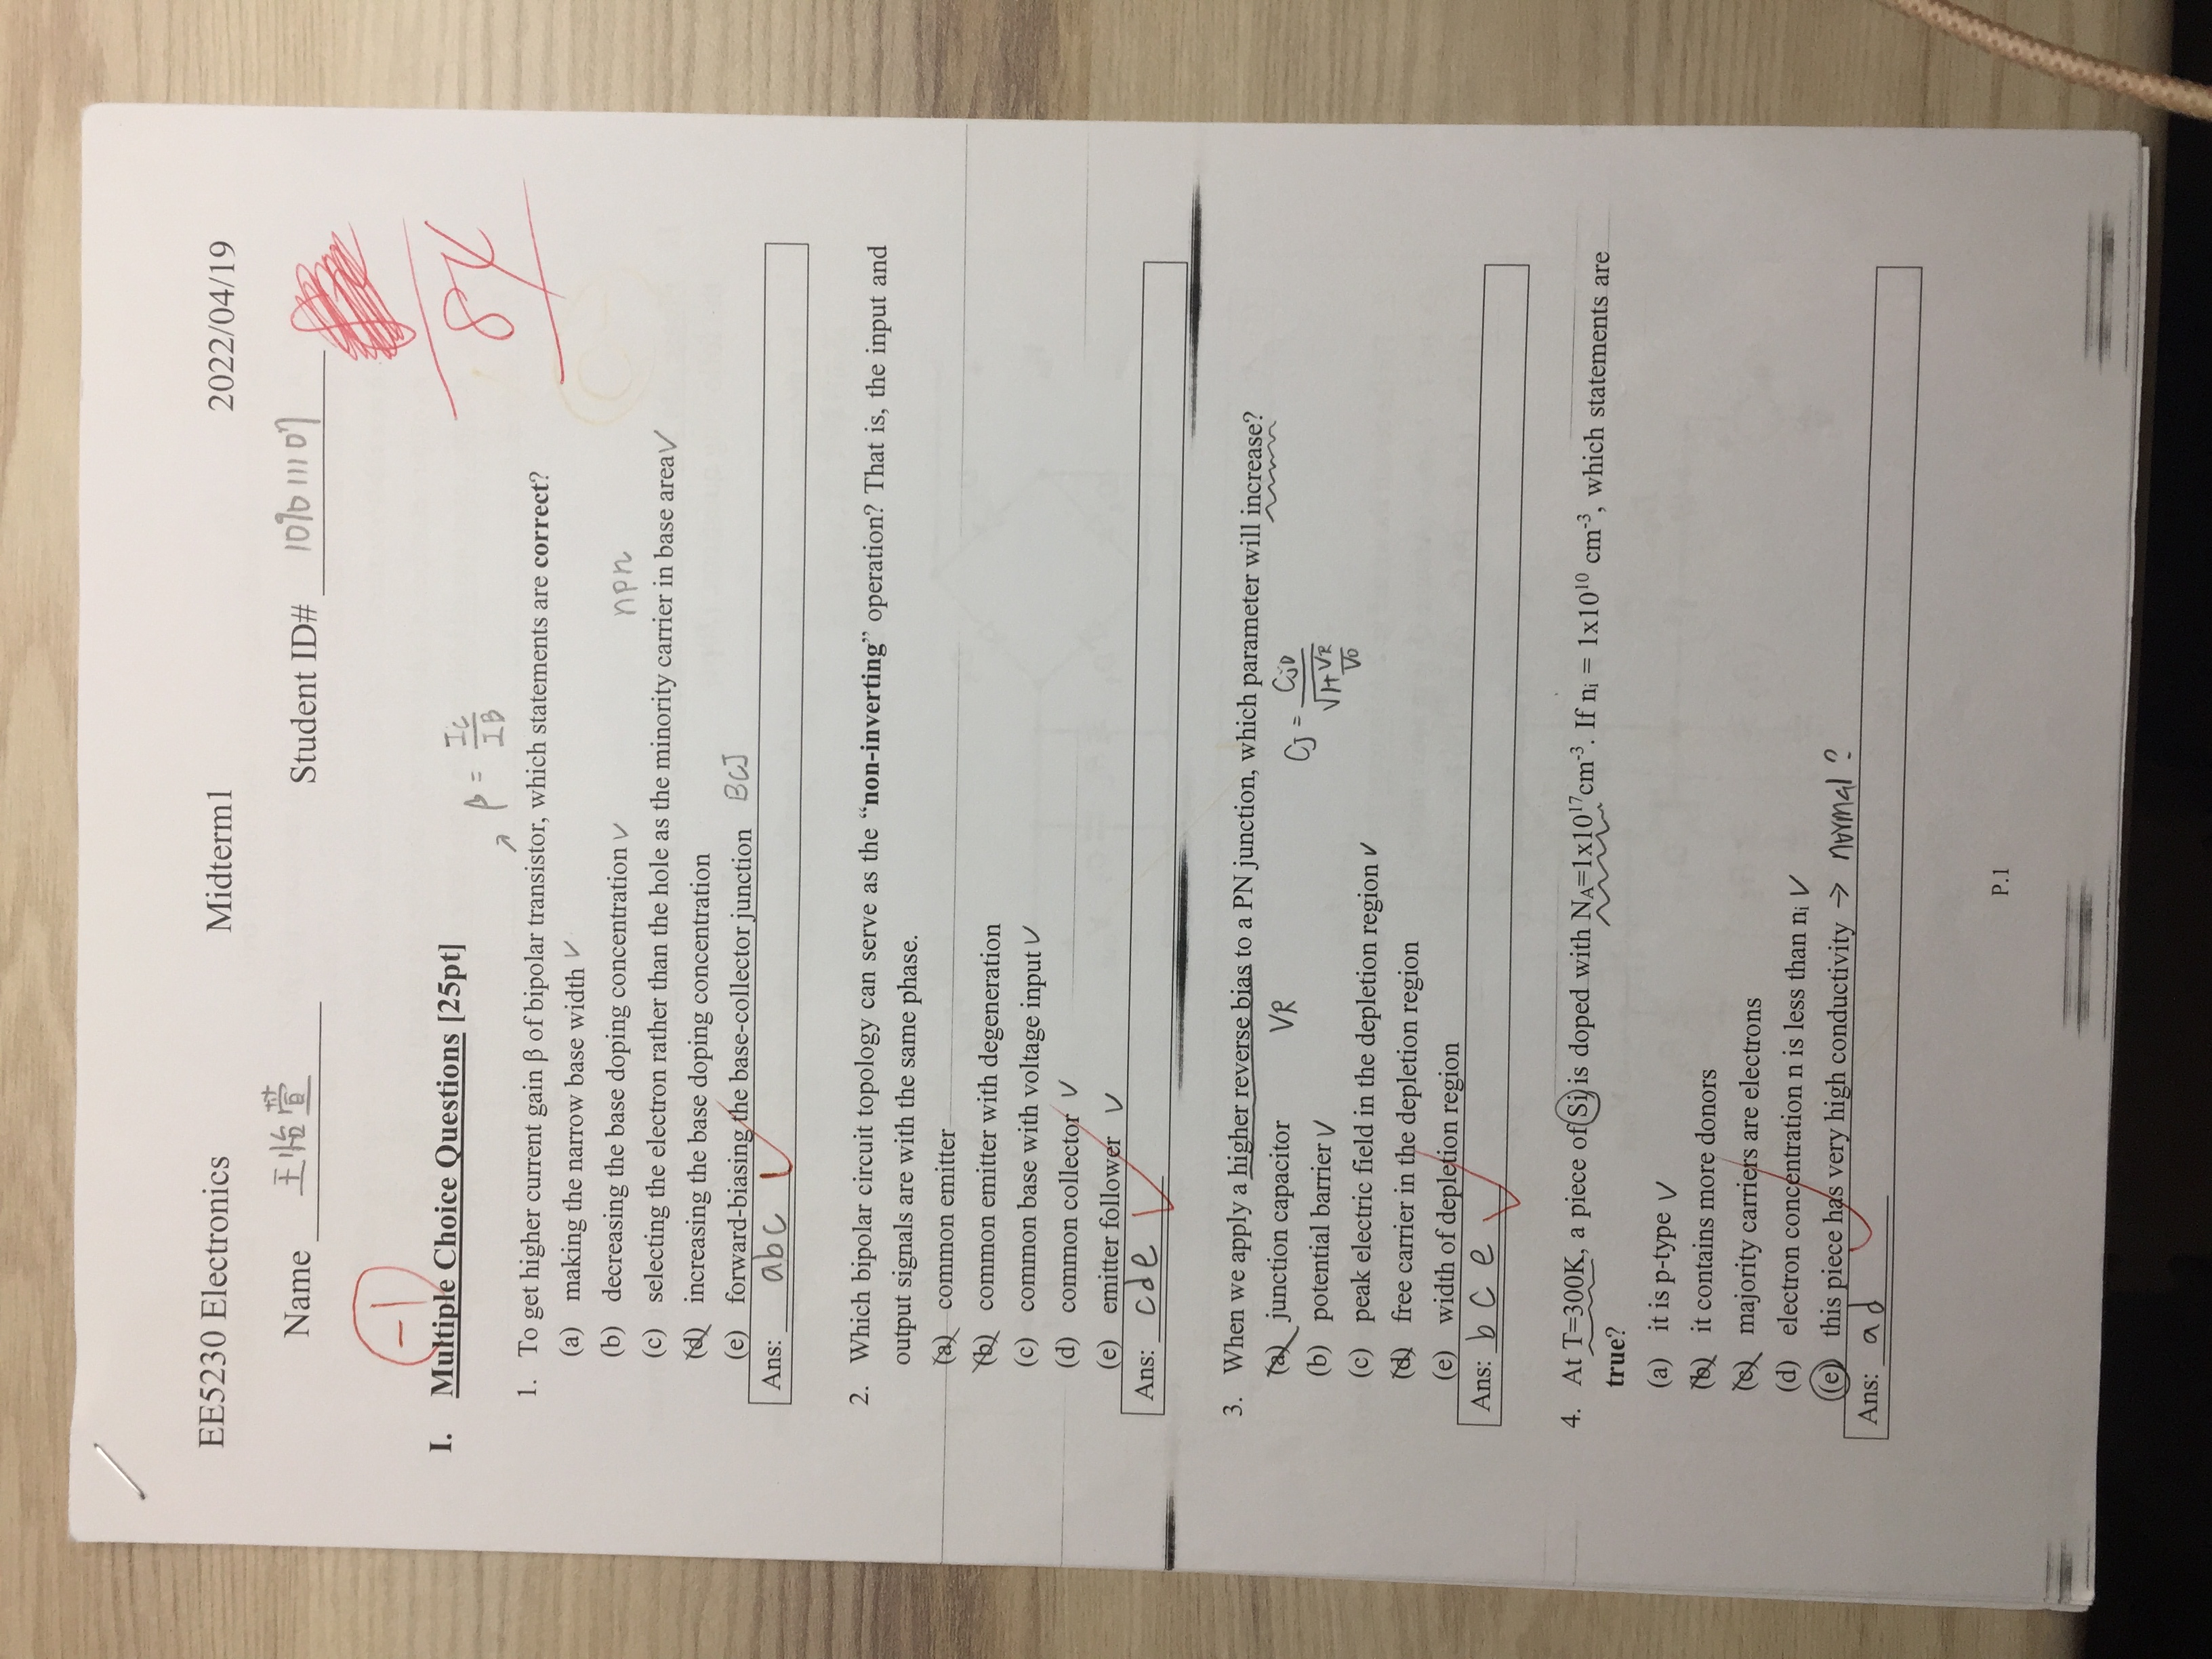 EE5230 Electronics Midterm1 2022/04/19
Name 王怡萱 Student ID# 107011107
-1
I. Multiple Choice Questions [25pt]
84
β = IC/IB
1. To get higher current gain β of bipolar transistor, which statements are correct?
(a) making the narrow base width ✓
(b) decreasing the base doping concentration ✓
npn
(c) selecting the electron rather than the hole as the minority carrier in base area ✓
(d) increasing the base doping concentration
(e) forward-biasing the base-collector junction BCJ
Ans: abc ✓
2. Which bipolar circuit topology can serve as the “non-inverting” operation? That is, the input and
output signals are with the same phase.
(a) common emitter
(b) common emitter with degeneration
(c) common base with voltage input ✓
(d) common collector ✓
(e) emitter follower ✓
Ans: cde ✓
3. When we apply a higher reverse bias to a PN junction, which parameter will increase?
(a) junction capacitor VR
CJ = Cj0/√1+VR/V0
(b) potential barrier ✓
(c) peak electric field in the depletion region ✓
(d) free carrier in the depletion region
(e) width of depletion region
Ans: b c e ✓
4. At T=300K, a piece of Si is doped with NA=1x10¹⁷cm⁻³. If ni = 1x10¹⁰ cm⁻³, which statements are
true?
(a) it is p-type ✓
(b) it contains more donors
(c) majority carriers are electrons
(d) electron concentration n is less than ni ✓
(e) this piece has very high conductivity → normal?
Ans: ad ✓
P.1